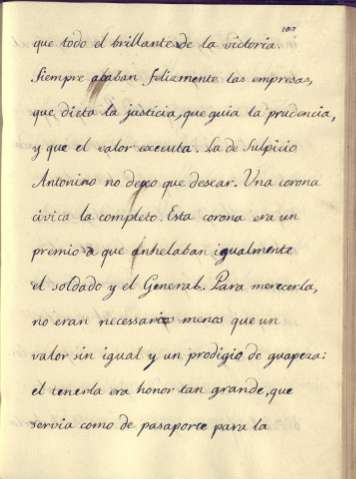 que todo el brillante de la victoria.
Siempre acaban felizmente las empresas,
que dicta la justicia, que guia la prudencia,
y que el valor executa. La de Sulpicio
Antonino no dexo que desear. Una corona
civica la completo. Esta corona era un
premio a que anhelaban igualmente
el soldado y el General. Para merecerla,
no eran necessarios menos que un
valor sin igual y un prodigio de guapeza:
el tenerla era honor tan grande, que
servia como de pasaporte para la